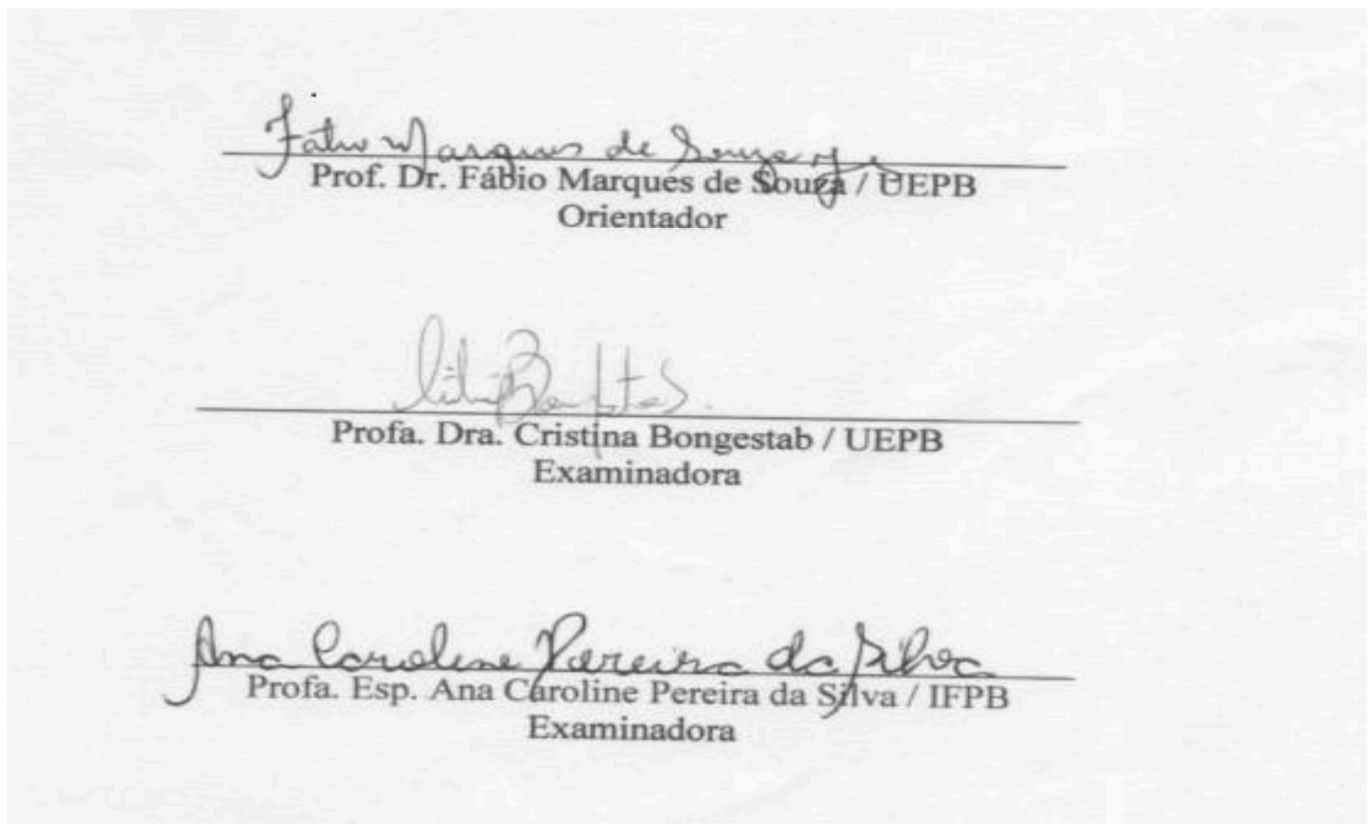 Fabio Marques de Souza
Prof. Dr. Fábio Marques de Souza / UEPB
Orientador
Profa. Dra. Cristina Bongestab / UEPB
Examinadora
Ana Caroline Pereira da Silva
Profa. Esp. Ana Caroline Pereira da Silva / IFPB
Examinadora